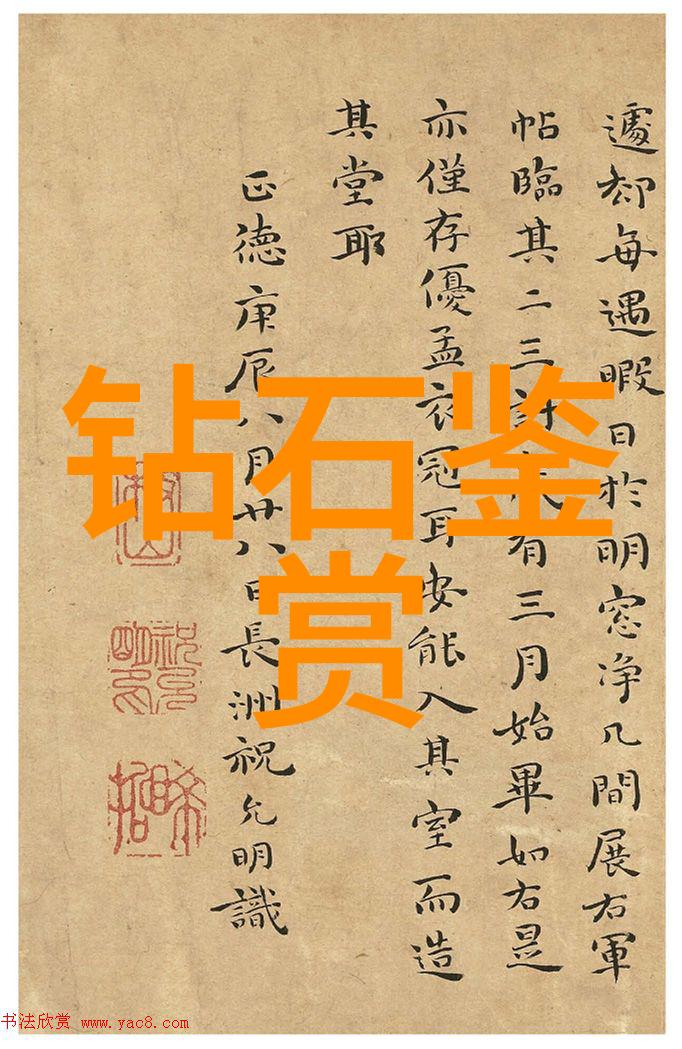 遽却每遇暇日於明窓净几間展右軍
帖臨其二三計有三月始畢如右是
亦僅存優孟衣冠耳安能入其室而造
其堂耶
正德庚辰八月廿八日長洲祝允明識
钻石鉴
赏
书法欣赏 www.yac8.com